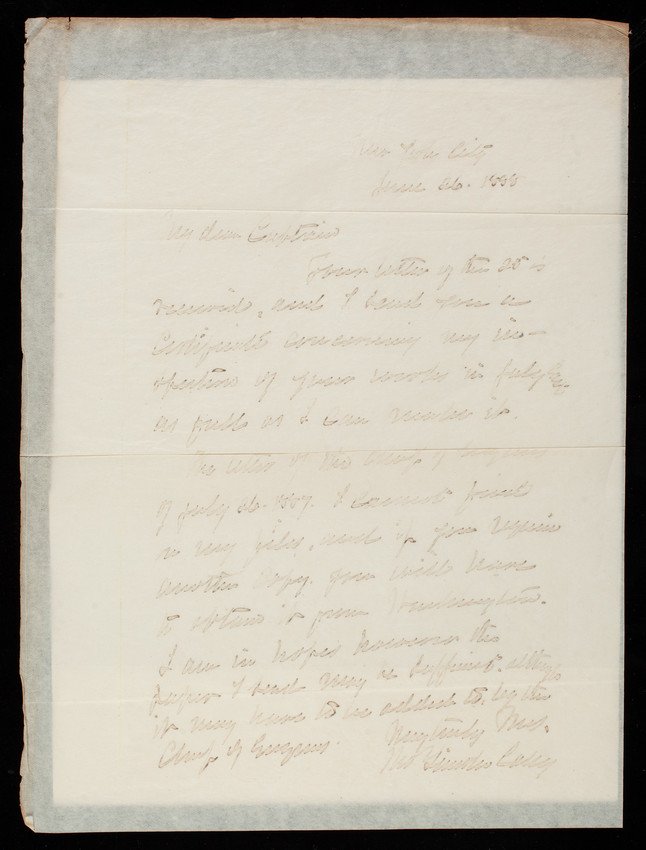 New York City
June 26. 1888
My dear Captain
Your letter of the 25 is
received, and I send you a
Certificate concerning my in-
spection of your works in July
as full as I can render it.
The letter of the Chief of Engineers
of July 26. 1887. I cannot find
in my files, and if you require
another copy, you will have
to obtain it from Washington.
I am in hopes however the
paper I send may be sufficient, altho
it may have to be added to, by the
Chief of Engineers.
Very truly Yours.
Thos Lincoln Casey